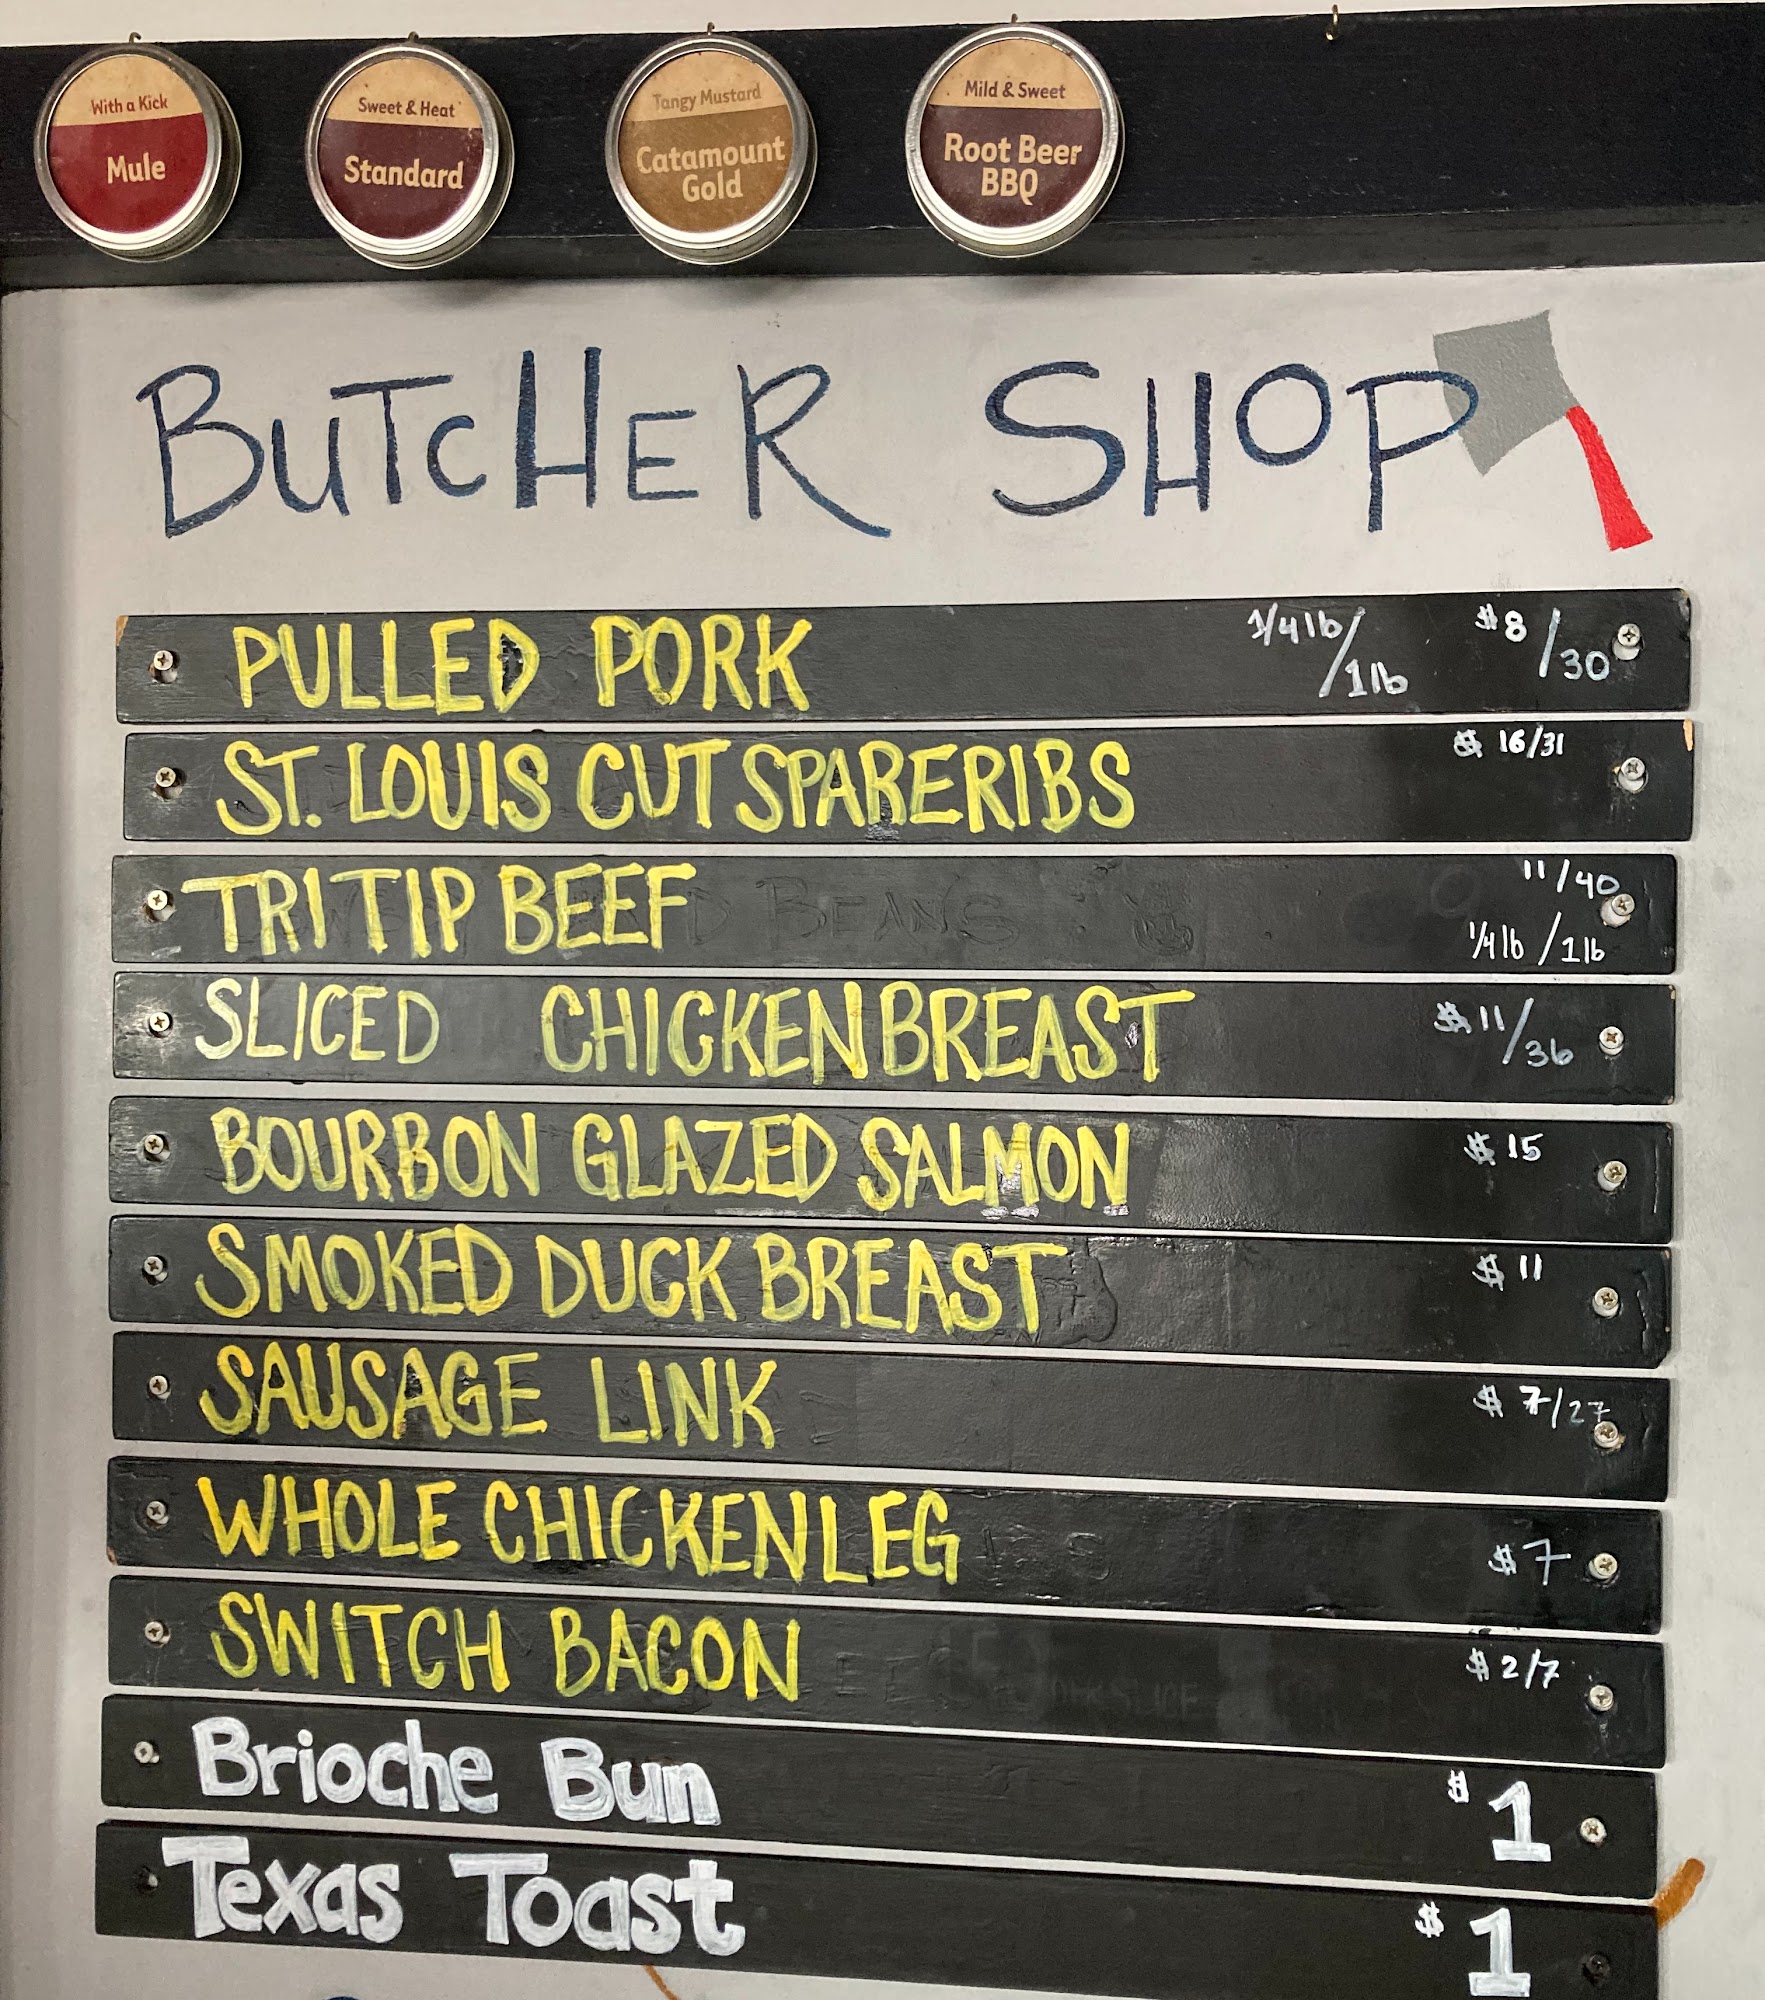 With a Kick
Mule
Sweet & Heat
Standard
Tangy Mustard
Catamount
Gold
Mild & Sweet
Root Beer
BBQ
BUTCHER SHOP
PULLED PORK 1/4 lb/1 lb $8/30
ST. LOUIS CUT SPARERIBS $ 16/31
TRI TIP BEEF 11/40
1/4 lb / 1 lb
SLICED CHICKEN BREAST $11/36
BOURBON GLAZED SALMON $ 15
SMOKED DUCK BREAST $ 11
SAUSAGE LINK $ 7/27
WHOLE CHICKEN LEG $7
SWITCH BACON $ 2/7
Brioche Bun $1
Texas Toast $1